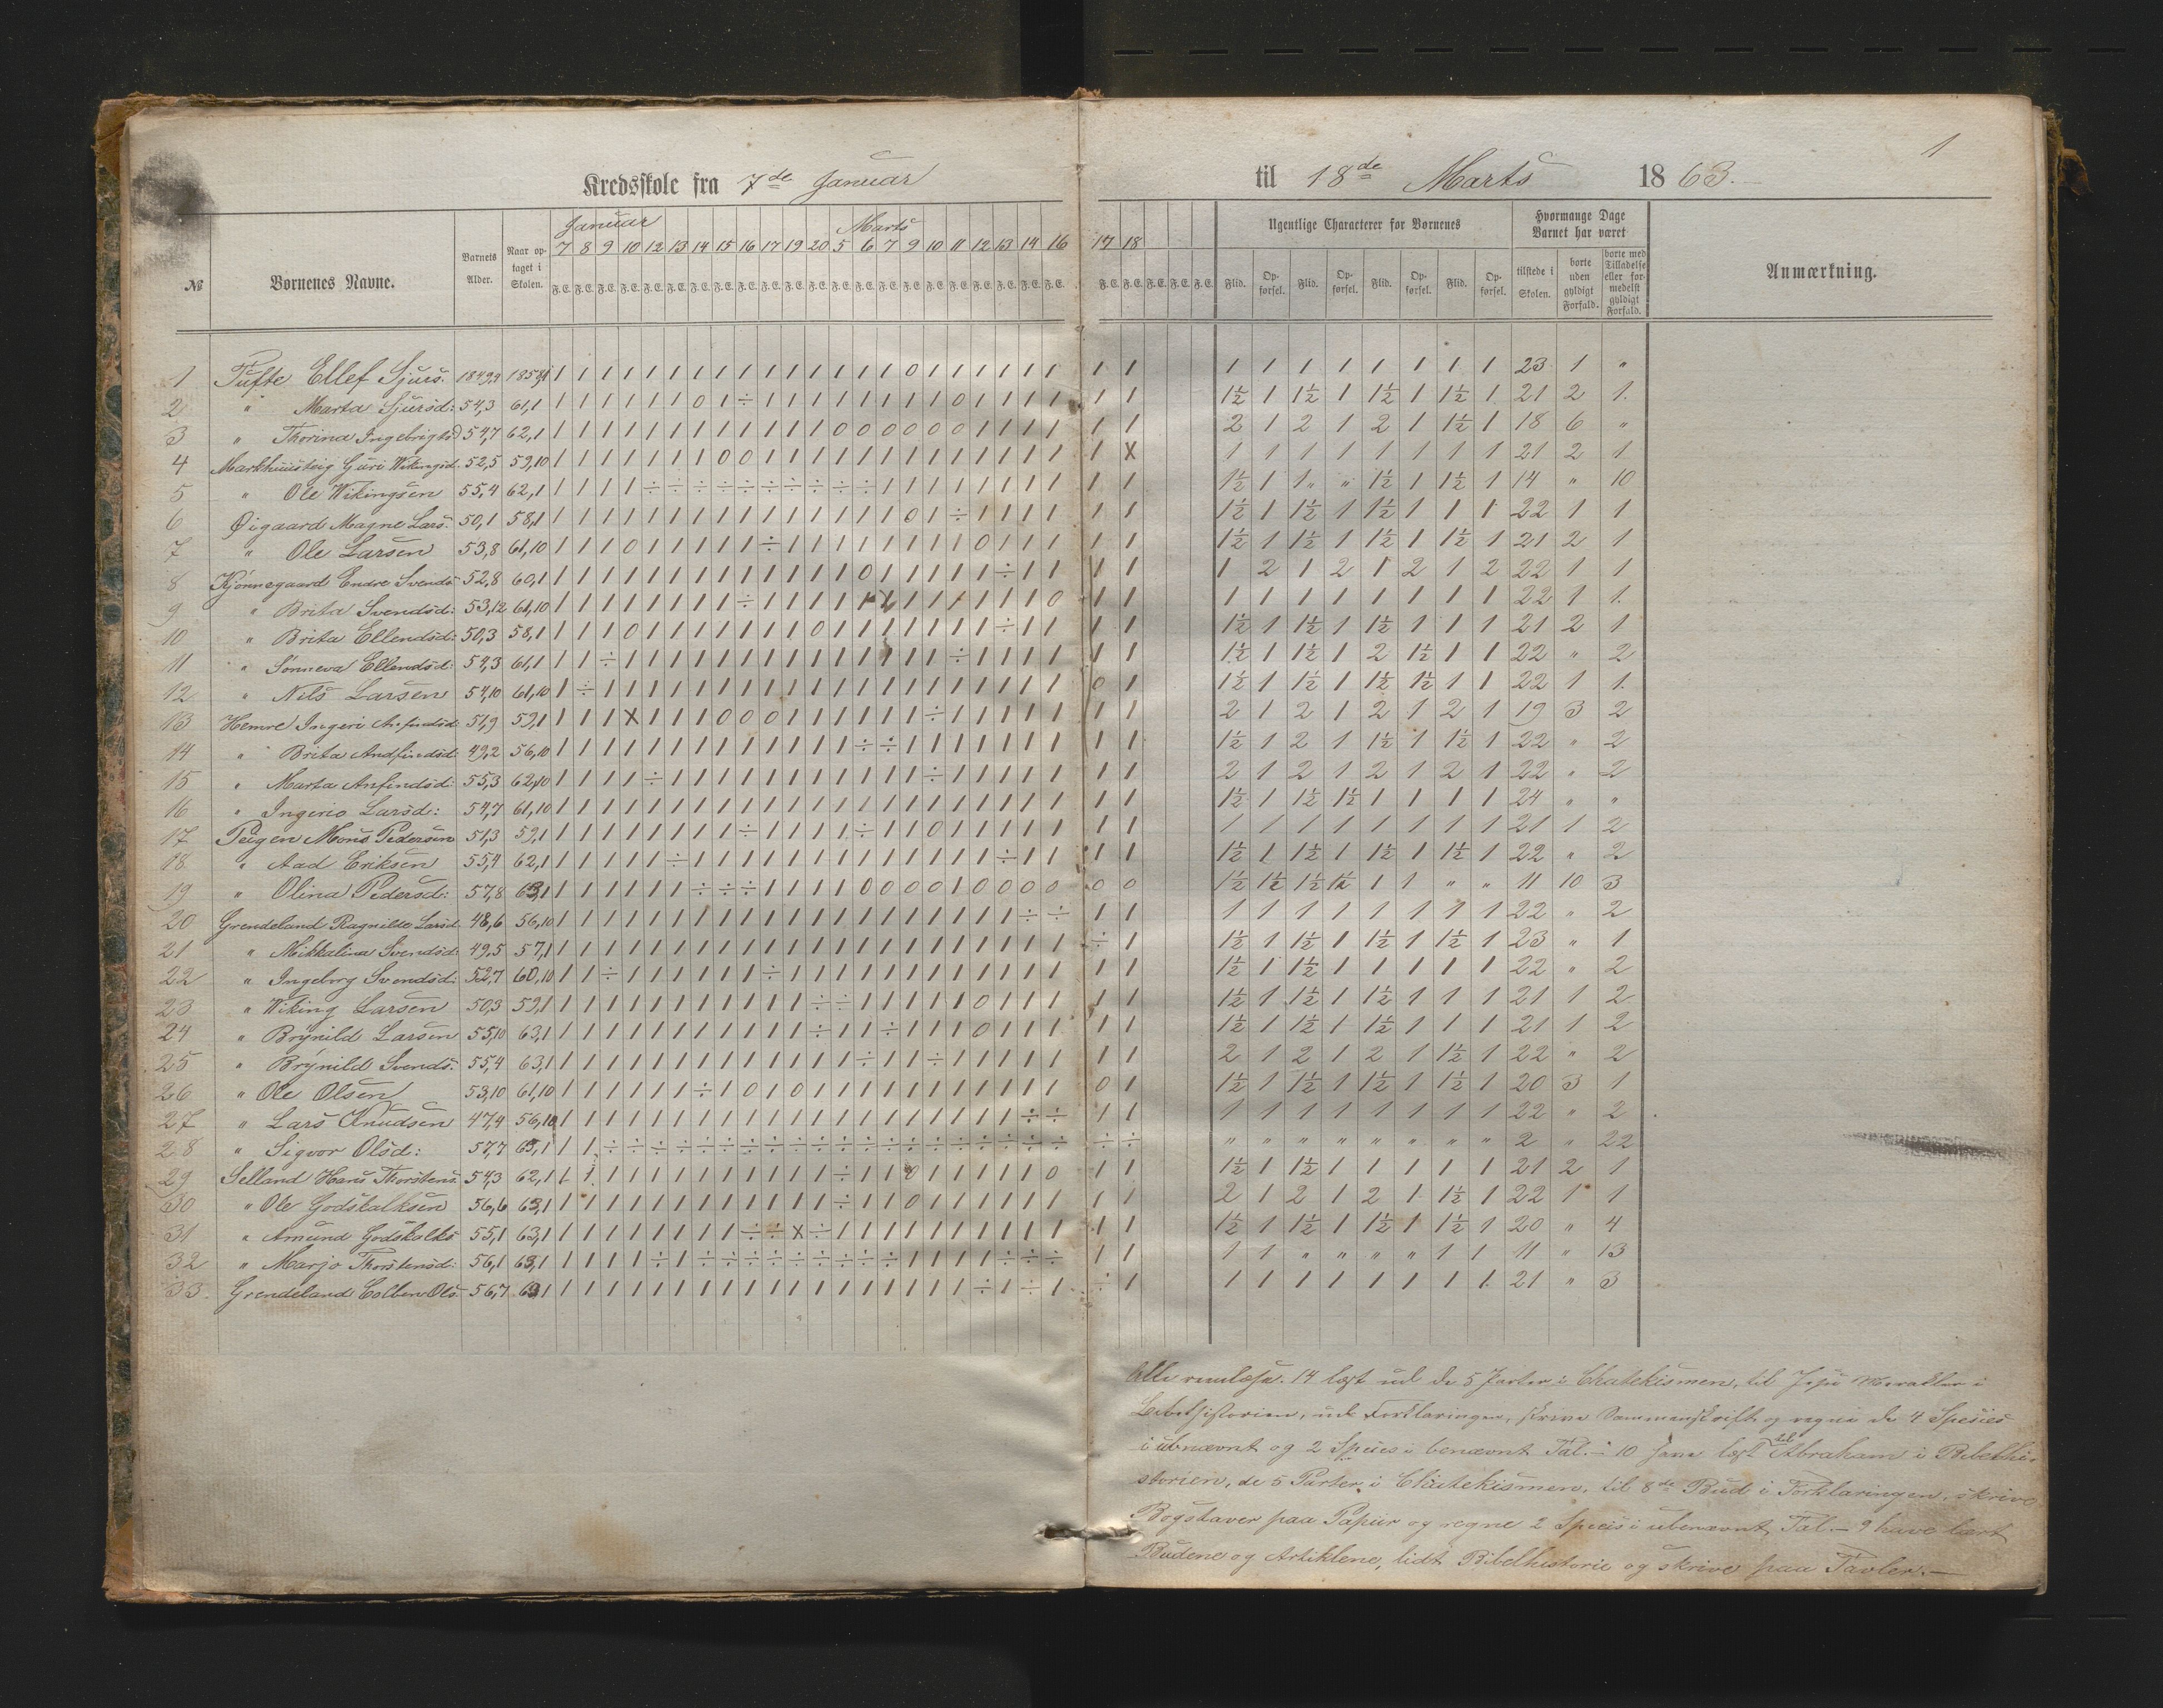 1
Kredsskole fra 7de Januar til 18de Marts 1863.
№ Børnenes Navne. Barnets Alder. Naar optaget i Skolen. Januar 7 8 9 10 12 13 14 15 16 17 19 20 Marts 5 6 7 9 10 11 12 13 14 16 17 18 Ugentlige Characterer for Børnenes Hvormange Dage Barnet har været Anmærkning.
F.E. F.E. F.E. F.E. F.E. F.E. F.E. F.E. F.E. F.E. F.E. F.E. F.E. F.E. F.E. F.E. F.E. F.E. F.E. F.E. F.E. F.E. F.E. F.E. F.E. F.E. F.E. Flid. Opførsel. Flid. Opførsel. Flid. Opførsel. Flid. Opførsel. tilstede i Skolen. borte uden gyldigt Forfald. borte med Tilladelse eller formedelst gyldigt Forfald.
1 Tufte Ellef Sjurs. 1849,9 1858,1 1 1 1 1 1 1 1 1 1 1 1 1 1 1 1 0 1 1 1 1 1 1 1 1 1 1 1 1 1 1 1 1 23 1 "
2 " Marta Sjursd: 54,3 61,1 1 1 1 1 1 1 0 1 ÷ 1 1 1 1 1 1 1 1 0 1 1 1 1 1 1 1½ 1 1½ 1 1½ 1 1½ 1 21 2 1.
3 " Thorina Ingebrigtsd 54,7 62,1 1 1 1 1 1 1 1 1 1 1 1 1 0 0 0 0 0 0 1 1 1 1 1 1 2 1 2 1 2 1 1½ 1 18 6 "
4 Markhuusteig Guri Wikingsd. 52,5 59,10 1 1 1 1 1 1 1 0 0 1 1 1 1 1 1 1 1 1 1 1 1 1 1 X 1 1 1 1 1 1 1 1 21 2 1
5 " Ole Wikingsen 55,4 62,1 1 1 1 1 ÷ ÷ ÷ ÷ ÷ ÷ ÷ ÷ ÷ ÷ 1 1 1 1 1 1 1 1 1 1 1½ 1 1 " " 1½ 1 1½ 1 14 " 10
6 Øigaard Magne Lars. 50,1 58,1 1 1 1 1 1 1 1 1 1 1 1 1 1 1 1 0 1 ÷ 1 1 1 1 1 1 1½ 1 1½ 1 1½ 1 1 1 22 1 1
7 " Ole Larsen 53,8 61,10 1 1 1 0 1 1 1 1 1 ÷ 1 1 1 1 1 1 1 1 0 1 1 1 1 1 1½ 1 1½ 1 1½ 1 1½ 1 21 2 1
8 Kjønnegaard Endre Svends 52,8 60,1 1 1 1 1 1 1 1 1 1 1 1 1 1 0 1 1 1 1 1 ÷ 1 1 1 1 1 2 1 2 1 2 1 2 22 1 1
9 " Brita Svendsd: 53,12 61,10 1 1 1 1 1 1 1 1 ÷ 1 1 1 1 1 1 1 1 1 1 1 1 0 1 1 1 1 1 1 1 1 1 1 22 1 1.
10 " Brita Ellendsd: 50,3 58,1 1 1 1 0 1 1 1 1 1 1 1 0 1 1 1 1 1 1 1 ÷ 1 1 1 1 1½ 1 1½ 1 1½ 1 1 1 21 2 1
11 " Sønneva Ellendsd: 54,3 61,1 1 1 ÷ 1 1 1 1 1 1 1 1 1 1 1 1 1 1 ÷ 1 1 1 1 1 1 1½ 1 1½ 1 2 1½ 1 1 22 " 2
12 " Nils Larsen 54,10 61,10 1 ÷ 1 1 1 1 1 1 1 1 1 1 1 1 1 1 1 1 1 1 1 1 0 1 1½ 1 1½ 1 1½ 1½ 1 1 22 1 1.
13 Hemre Ingeri Anfindsd: 51,9 59,1 1 1 1 X 1 1 1 0 0 0 1 1 1 1 1 1 ÷ 1 1 1 1 1 1 1 2 1 2 1 2 1 2 1 19 3 2
14 " Brita Andfindsd: 49,2 56,10 1 1 1 1 1 1 1 1 1 1 1 1 1 ÷ ÷ 1 1 1 1 1 1 1 1 1 1½ 1 2 1 1½ 1 1½ 1 22 " 2
15 " Marta Anfindsd: 55,3 62,10 1 1 1 1 ÷ 1 1 1 1 1 1 1 1 1 1 1 ÷ 1 1 1 1 1 1 1 2 1 2 1 2 1 2 1 22 " 2
16 " Ingerio Larsd: 54,7 61,10 1 1 1 1 1 1 1 1 1 1 1 1 1 1 1 1 1 1 1 1 1 1 1 1 1½ 1 1½ 1½ 1 1 1 1 24 " "
17 Teigen Mons Pedersen 51,3 59,1 1 1 1 1 1 1 1 1 ÷ 1 1 1 1 ÷ 1 1 0 1 1 1 1 1 1 1 1 1 1 1 1 1 1 1 21 1 2
18 " Aad Eriksen 55,4 62,1 1 1 1 1 1 ÷ 1 1 1 1 1 1 1 1 1 1 1 1 1 ÷ 1 1 1 1 1½ 1 1½ 1 1½ 1 1½ 1 22 " 2
19 " Olina Pedersd: 57,8 63,1 1 1 1 1 1 1 ÷ ÷ ÷ 1 1 1 1 0 0 0 0 1 0 0 0 0 0 0 1½ 1½ 1½ 1½ 1 1 " " 11 10 3
20 Grendeland Ragnilde Larsd. 48,6 56,10 1 1 1 1 1 1 1 1 1 1 1 1 1 1 1 1 1 1 1 1 ÷ ÷ 1 1 1 1 1 1 1 1 1 1 22 " 2
21 " Mikkalina Svendsd: 49,5 57,1 1 1 1 1 1 1 1 1 1 1 1 1 1 1 1 1 1 1 1 1 1 1 ÷ 1 1½ 1 1½ 1 1½ 1 1½ 1 23 " 1
22 " Ingeborg Svendsd: 52,7 60,10 1 1 ÷ 1 1 1 1 1 1 ÷ 1 1 1 1 1 1 1 1 1 1 1 1 1 1 1½ 1 1½ 1 1 1 1 1 22 " 2
23 " Wiking Larsen 50,3 59,1 1 1 1 1 1 1 1 1 1 1 1 ÷ ÷ 1 1 1 1 1 0 1 1 1 1 1 1½ 1 1½ 1 1½ 1 1 1 21 1 2
24 " Brynild Larsen 55,10 63,1 1 1 1 1 1 1 1 1 1 1 1 ÷ 1 1 ÷ 1 1 1 0 1 1 1 1 1 1½ 1 1½ 1 1½ 1 1 1 21 1 2
25 " Brynild Svends. 55,4 63,1 1 1 1 1 1 1 1 1 1 1 1 1 1 ÷ 1 1 ÷ 1 1 1 1 1 1 1 2 1 2 1 2 1 1½ 1 22 " 2
26 " Ole Olsen 53,10 61,10 1 1 1 1 1 1 ÷ 1 0 1 0 1 1 1 1 1 1 1 1 1 1 1 0 1 1½ 1 1½ 1 1½ 1 1½ 1 20 3 1
27 " Lars Knudsen 47,4 56,10 1 1 1 1 1 1 1 1 1 1 1 1 1 1 1 1 1 1 1 1 ÷ ÷ 1 1 1 1 1 1 1 1 1 1 22 " 2
28 " Sigvor Olsd: 57,7 63,1 1 1 ÷ ÷ ÷ ÷ ÷ ÷ ÷ ÷ ÷ ÷ ÷ ÷ ÷ ÷ ÷ ÷ ÷ ÷ ÷ ÷ ÷ ÷ " " " " " " " " 2 " 22
29 Selland Hans Thorstens. 54,3 62,1 1 1 1 1 1 1 1 1 1 1 1 1 ÷ 1 1 0 1 1 1 1 1 0 1 1 1½ 1 1½ 1 1 1 1 1 21 2 1
30 " Ole Godskalksen 56,6 63,1 1 1 1 1 1 1 1 1 1 1 1 1 ÷ 1 1 0 1 1 1 1 1 1 1 1 2 1 2 1 2 1 1½ 1 22 1 1
31 " Amund Godskalks 55,1 63,1 1 1 1 1 1 1 1 1 ÷ ÷ X ÷ 1 1 1 1 1 1 1 1 1 1 1 1 1½ 1 1½ 1 1½ 1 1½ 1 20 " 4
32 " Marjo Thorstensd: 56,1 63,1 1 1 1 1 ÷ 1 ÷ ÷ ÷ ÷ ÷ ÷ ÷ ÷ ÷ 1 1 1 1 ÷ ÷ ÷ 1 1 1 1 " " " " 1 1 11 " 13
33. Grendeland Colben Ols. 56,7 63,1 1 1 1 1 1 1 1 1 1 1 1 1 1 1 1 1 1 1 ÷ 1 ÷ 1 ÷ 1 1 1 1 1 1 1 1 1. 21 " 3
Alle 14 læst ud de 5 Parter i Chatekismen, til Jesu Mirakler i
ud Forklaringen, skrive Sammenskrift og regne de 4 Spesies
i ubnævnt og 2 Spesies i benævnt Tal. – 10 have læst til Abraham i Bibelhi-
storien, de 5 Parter i Chatekismen, til 8de Bud i Forklaringen, skrive
Bogstaver paa Papiir og regne 2 Specis i ubenævnt Tal. – 9 have lært
Budene og Artiklene, lidt Bibelhistorie og skrive paa Tavler. –